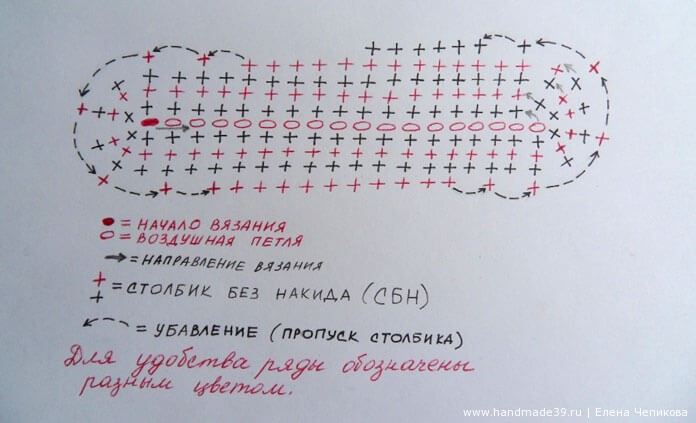 = НАЧАЛО ВЯЗАНИЯ
= ВОЗДУШНАЯ ПЕТЛЯ
= НАПРАВЛЕНИЕ ВЯЗАНИЯ
= СТОЛБИК БЕЗ НАКИДА (СБН)
= УБАВЛЕНИЕ (ПРОПУСК СТОЛБИКА)
Для удобства ряды обозначены
разным цветом.
www.handmade39.ru | Елена Чепикова